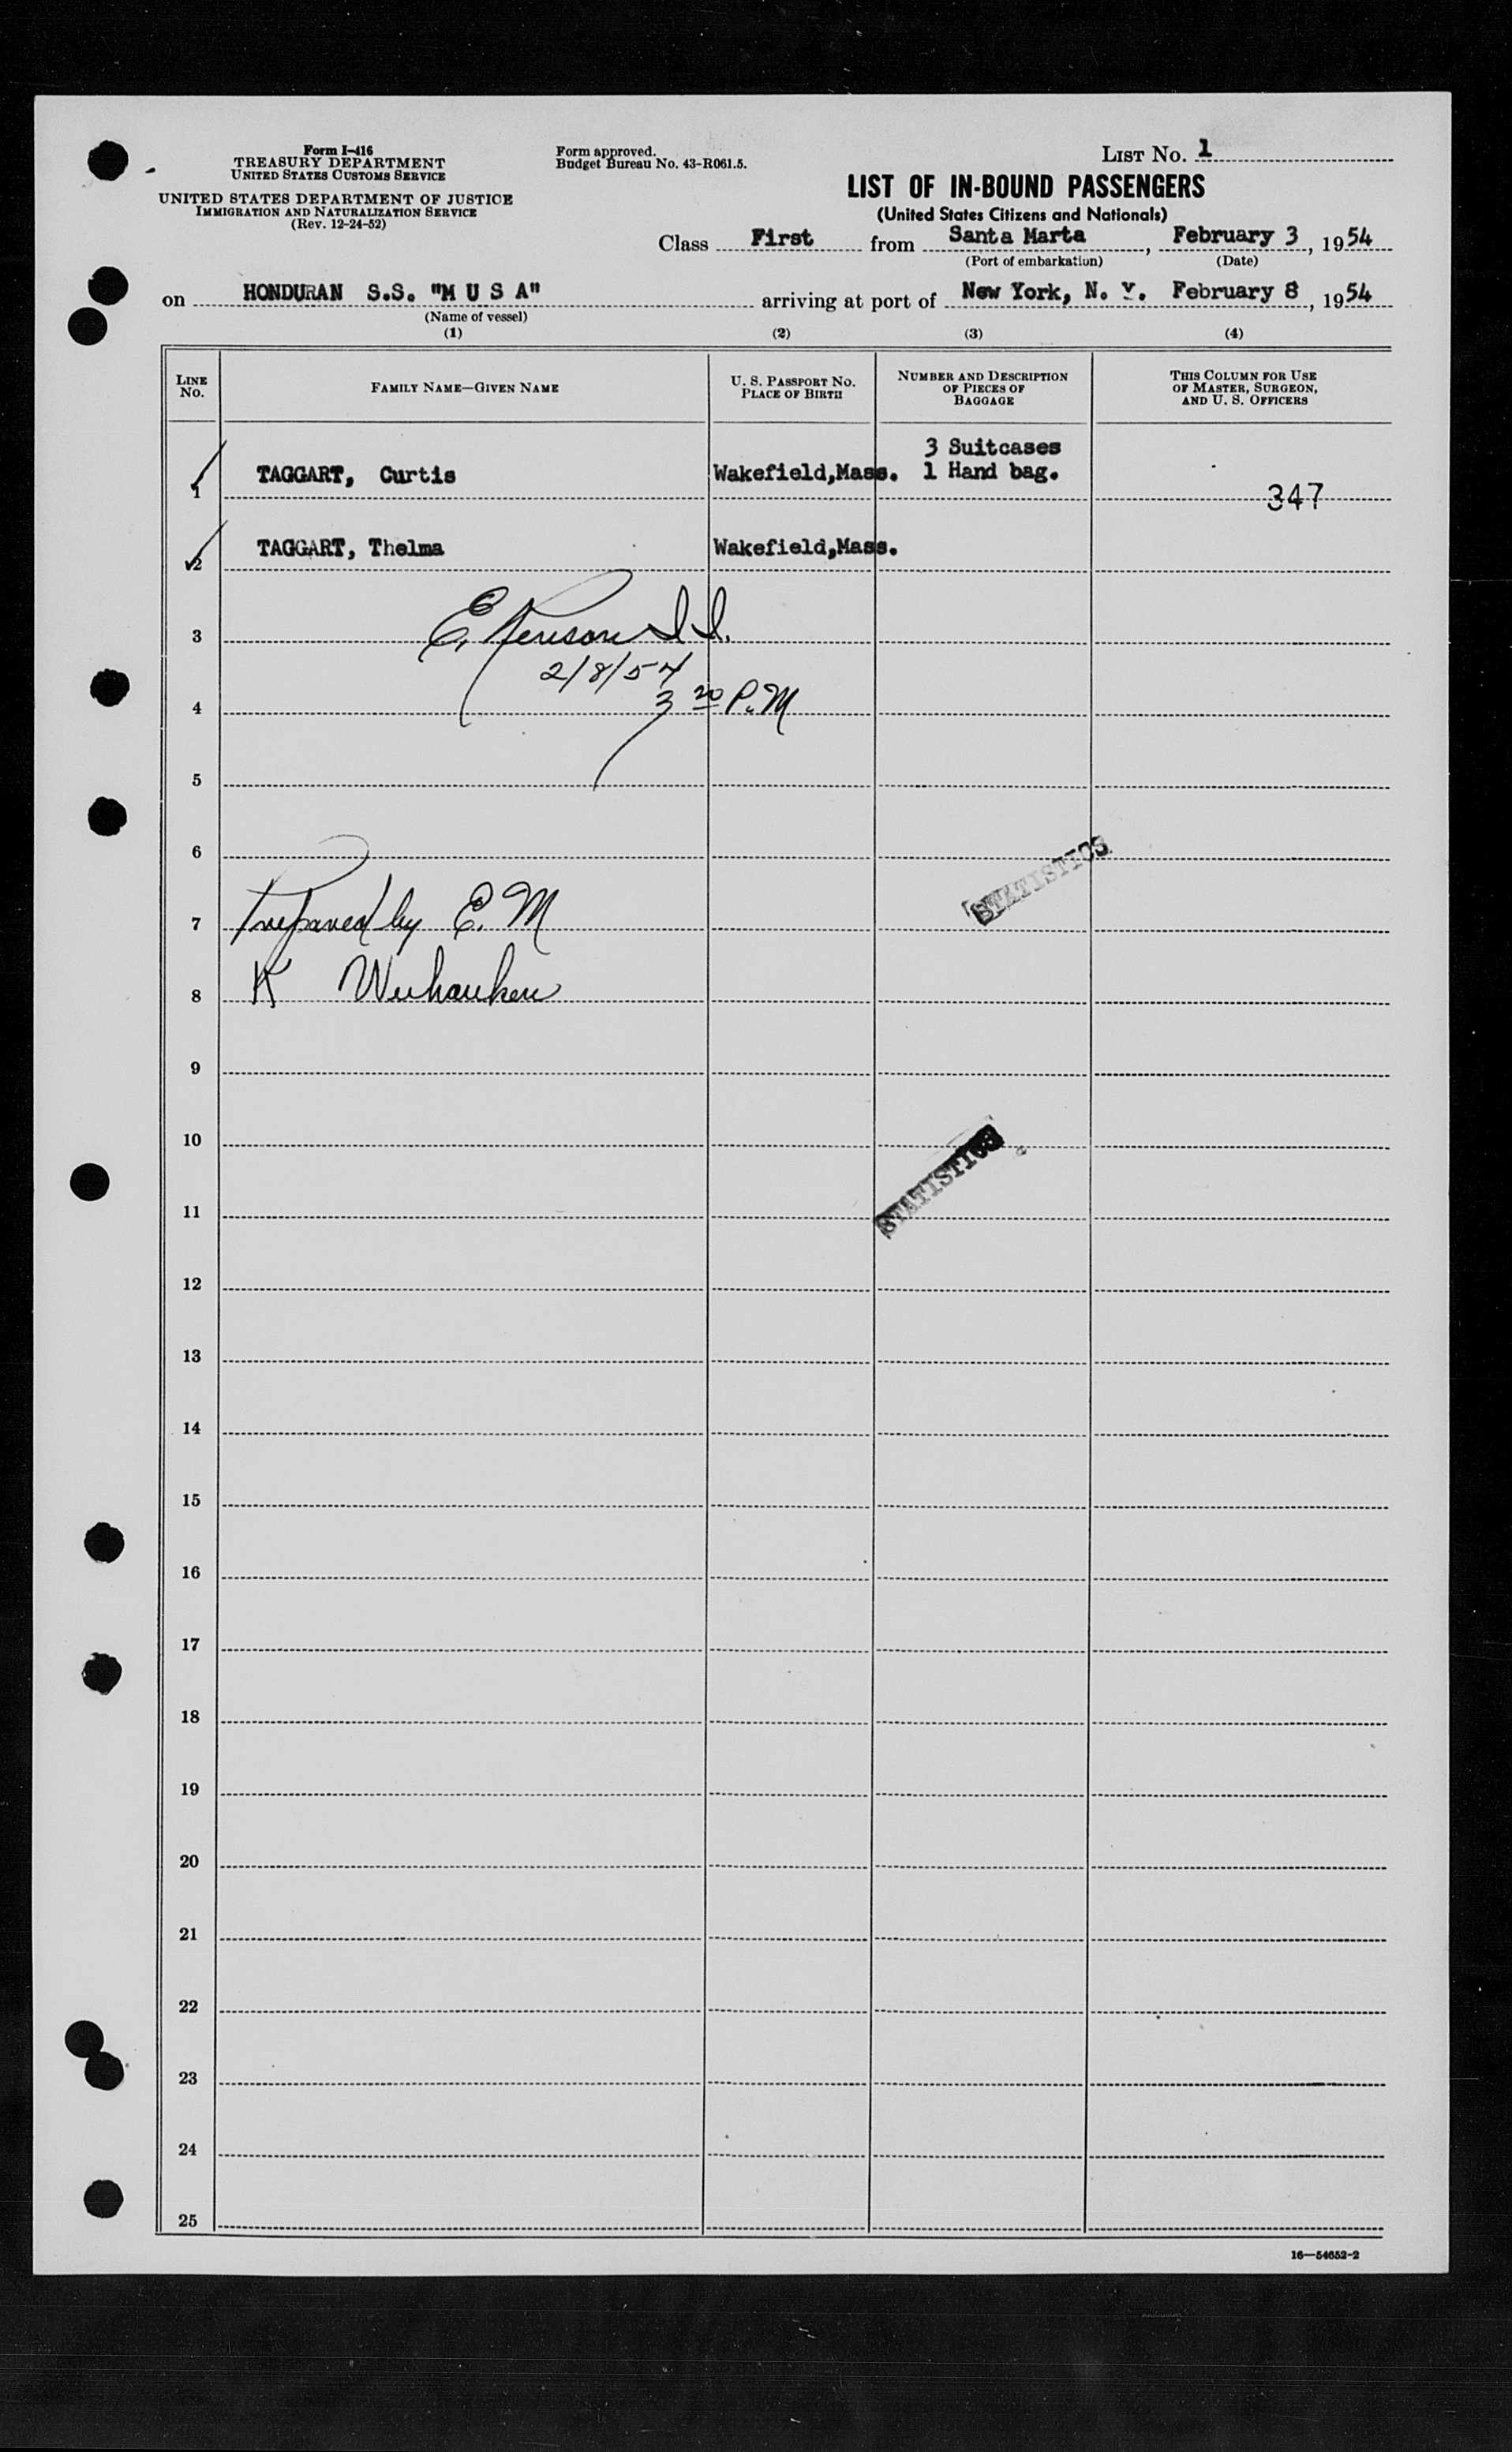 Form I-416
TREASURY DEPARTMENT
UNITED STATES CUSTOMS SERVICE
UNITED STATES DEPARTMENT OF JUSTICE
IMMIGRATION AND NATURALIZATION SERVICE
(Rev. 12-24-52)
Form approved.
Budget Bureau No. 43-R061.5.
LIST NO. 1
LIST OF IN-BOUND PASSENGERS
(United States Citizens and Nationals)
Class First from Santa Marta, February 3, 1954
(Port of embarkation) (Date)
on HONDURAN S.S. "M U S A" arriving at port of New York, N. Y. February 8, 1954
(Name of vessel)
(1) (2) (3) (4)
LINE NO.
FAMILY NAME—GIVEN NAME
U. S. PASSPORT NO.
PLACE OF BIRTH
NUMBER AND DESCRIPTION
OF PIECES OF
BAGGAGE
THIS COLUMN FOR USE
OF MASTER, SURGEON,
AND U. S. OFFICERS
3 Suitcases
1 TAGGART, Curtis Wakefield,Mass. 1 Hand bag.
347
2 TAGGART, Thelma Wakefield,Mass.
3 E.
2/8/54
4 3 20 P.M
5
6
STATISTICS
7 Prepared by E. M
8 K Weehauken
9
10
STATISTICS
11
12
13
14
15
16
17
18
19
20
21
22
23
24
25
16—54652-2